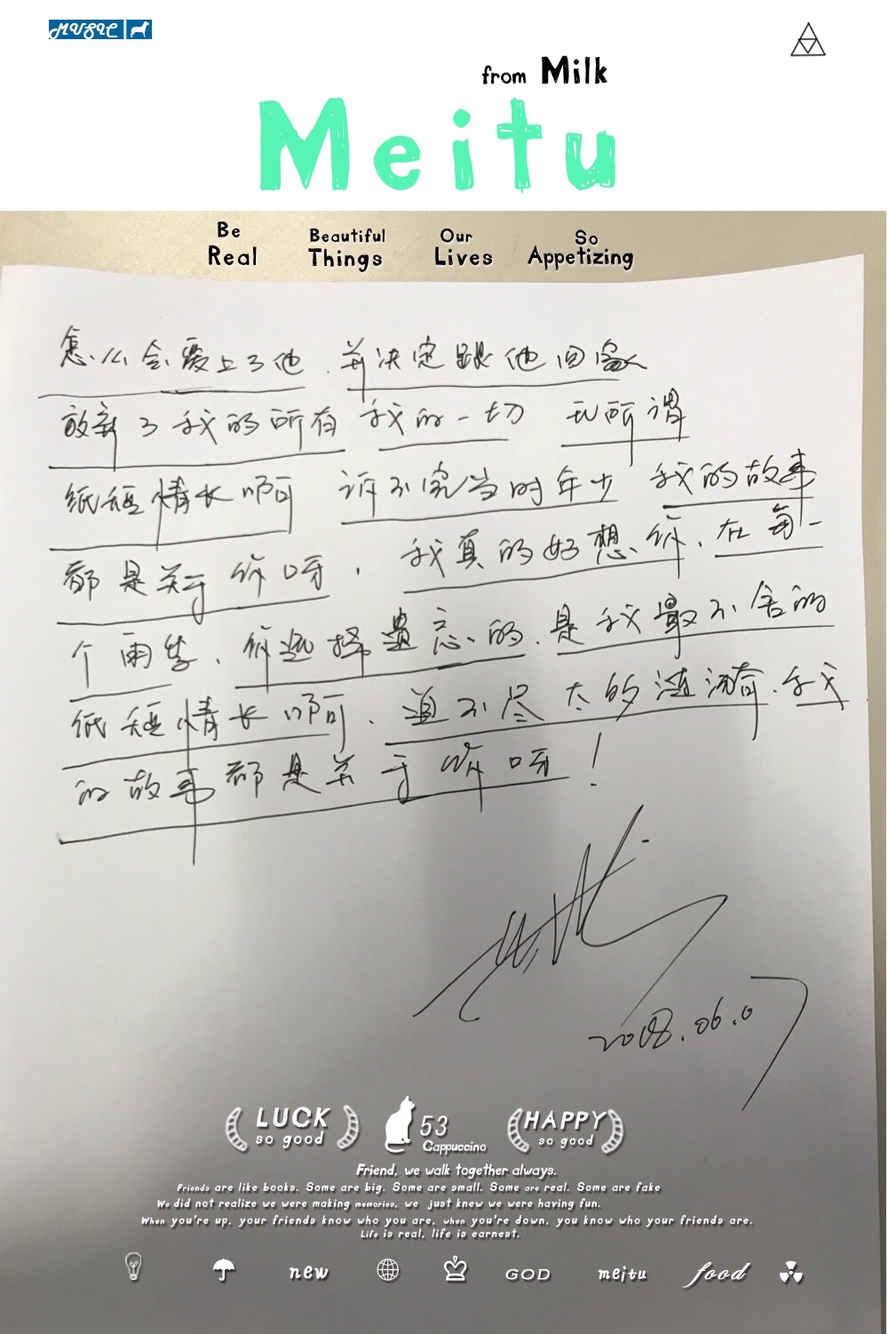 MUSIC
from Milk
Meitu
Be Real
Beautiful Things
Our Lives
So Appetizing
怎么会爱上了他，并决定跟他回家
放弃了我的所有 我的一切 无所谓
纸短情长啊 诉不完当时年少 我的故事
都是关于你呀，我真的好想你，在每一
个雨季，你选择遗忘的，是我最不舍的
纸短情长啊，道不尽太多涟漪，我
的故事都是关于你呀！
LUCK so good
53 Cappuccino
HAPPY so good
Friend, we walk together always.
Friends are like books. Some are big. Some are small. Some are real. Some are fake
We did not realize we were making memories, we just knew we were having fun.
When you're up, your friends know who you are, when you're down, you know who your friends are.
Life is real, life is earnest.
new
GOD
meitu
food